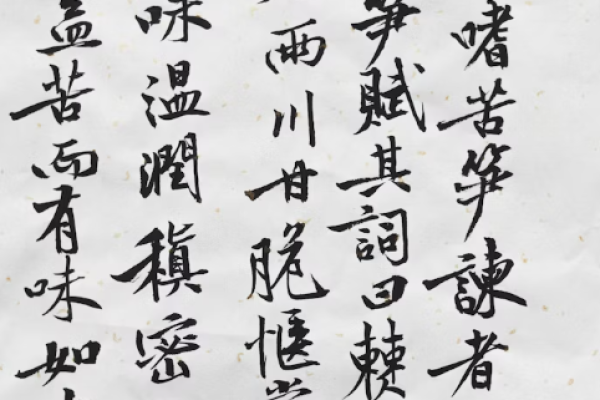 嗜苦笋諫者
笋賦其詞曰僰
兩川甘脆愜
味温潤稹密
盖苦而有味如